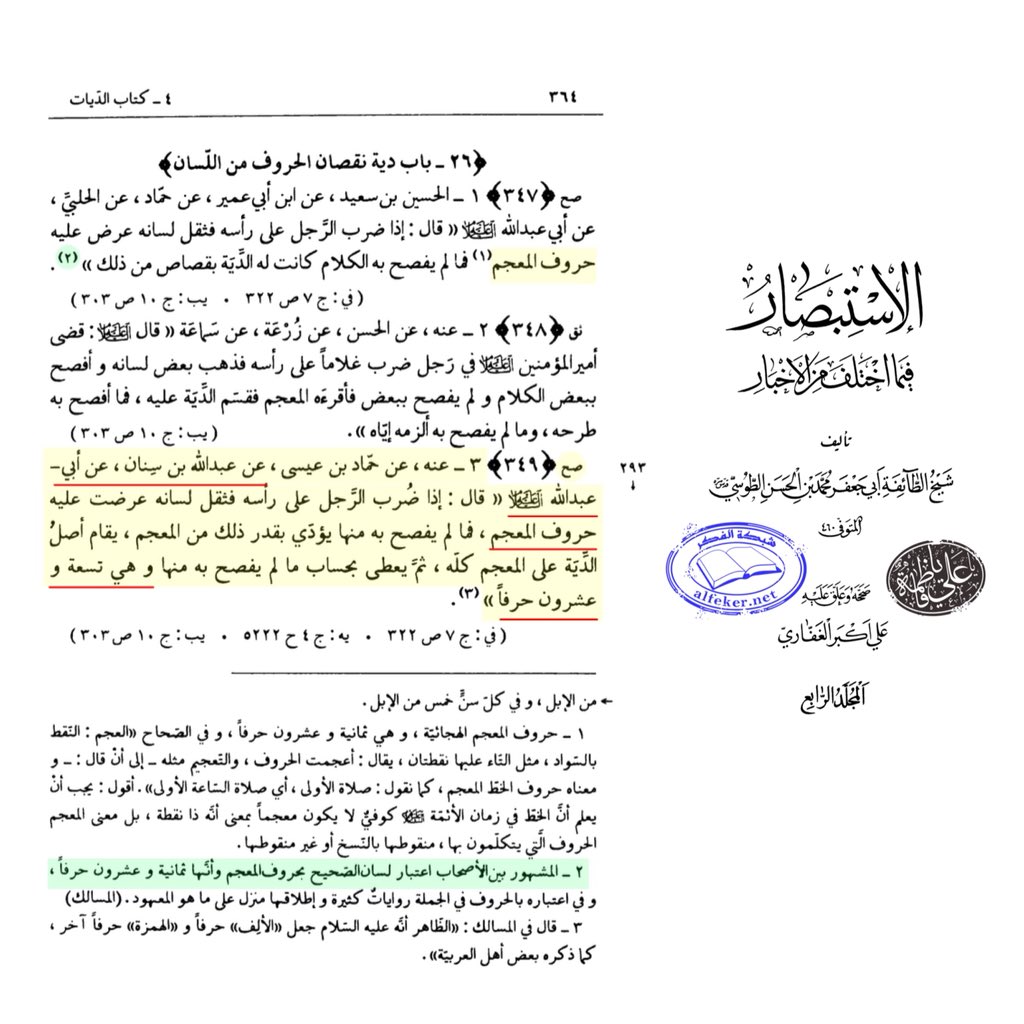 ٣٦٤
٤ ـ كتاب الدّيات
﴿٢٦ ـ باب دية نقصان الحروف من اللّسان﴾
صح ﴿٣٤٧﴾ ١ ـ الحسين بن سعيد ، عن ابن أبي عمير ، عن حمّاد ، عن الحلبيِّ ،
عن أبي عبدالله عليه السلام « قال : إذا ضرب الرَّجل على رأسه فثقل لسانه عرض عليه
حروف المعجم (١) فما لم يفصح به الكلام كانت له الدِّيَة بقصاص من ذلك » (٢) .
( في : ج ٧ ص ٣٢٢ ٠ يب : ج ١٠ ص ٣٠٣ )
نق ﴿٣٤٨﴾ ٢ ـ عنه ، عن الحسن ، عن زُرْعَة ، عن سَماعَة « قال عليه السلام : قضى
أميرالمؤمنين عليه السلام في رَجل ضرب غلاماً على رأسه فذهب بعض لسانه و أفصح
ببعض الكلام و لم يفصح ببعض فأقرءَه المعجم فقسّم الدِّيَة عليه ، فما أفصح به
طرحه ، وما لم يفصح به ألزمه إيّاه » .
( يب : ج ١٠ ص ٣٠٣ )
صح ﴿٣٤٩﴾ ٣ ـ عنه ، عن حمّاد بن عيسى ، عن عبدالله بن سِنان ، عن أبي-
عبدالله عليه السلام « قال : إذا ضُرب الرَّجل على رأسه فثقل لسانه عرضت عليه
حروف المعجم ، فما لم يفصح به منها يؤدّي بقدر ذلك من المعجم ، يقام أصلُ
الدِّيَة على المعجم كلّه ، ثمَّ يعطى بحساب ما لم يفصح به منها و هي تسعة و
عشرون حرفاً » (٣) .
( في : ج ٧ ص ٣٢٢ ٠ يه : ج ٤ ح ٥٢٢٢ ٠ يب : ج ١٠ ص ٣٠٣ )
٢٩٣
من الإبل ، و في كلّ سنٍّ خمس من الإبل .
١ ـ حروف المعجم الهجائيّة ، و هي ثمانية و عشرون حرفاً ، و في الصّحاح «العجم : النّقط
بالسّواد ، مثل التّاء عليها نقطتان ، يقال : أعجمت الحروف ، والتّعجيم مثله ـ إلى أنْ قال : ـ و
معناه حروف الخطّ المعجم ، كما نقول : صلاة الأولى ، أي صلاة السّاعة الأولى» . أقول : يجب أنْ
يعلم أنَّ الخطّ في زمان الأئمّة كوفيٌّ لا يكون معجماً بمعنى أنَّه ذا نقطة ، بل معنى المعجم
الحروف الَّتي يتكلّمون بها ، منقوطها بالنّسخ أو غير منقوطها .
٢ ـ المشهور بين الأصحاب اعتبار لسان الصّحيح بحروف المعجم وأنَّها ثمانية و عشرون حرفاً ،
و في اعتباره بالحروف في الجملة رواياتٌ كثيرة و إطلاقها منزل على ما هو المعهود . (المسالك)
٣ ـ قال في المسالك : «الظّاهر أنَّه عليه السّلام جعل «الألِف» حرفاً و «الهمزة» حرفاً آخر ،
كما ذكره بعض أهل العربيّة» .
الاِسْتِبْصَارُ
فِيمَا اخْتَلَفَ مِنَ الْاَخْبَارِ
تأليف
شَيْخِ الطَّائِفَةِ اَبِي جَعْفَر مُحَمَّدِ بْنِ الْحَسَنِ الطُّوسِيّ
المتوفى ٤٦٠
شبكة الفكر
alfeker.net
صححه وعلق عليه
علي اكبر الغفاري
المجلد الرابع